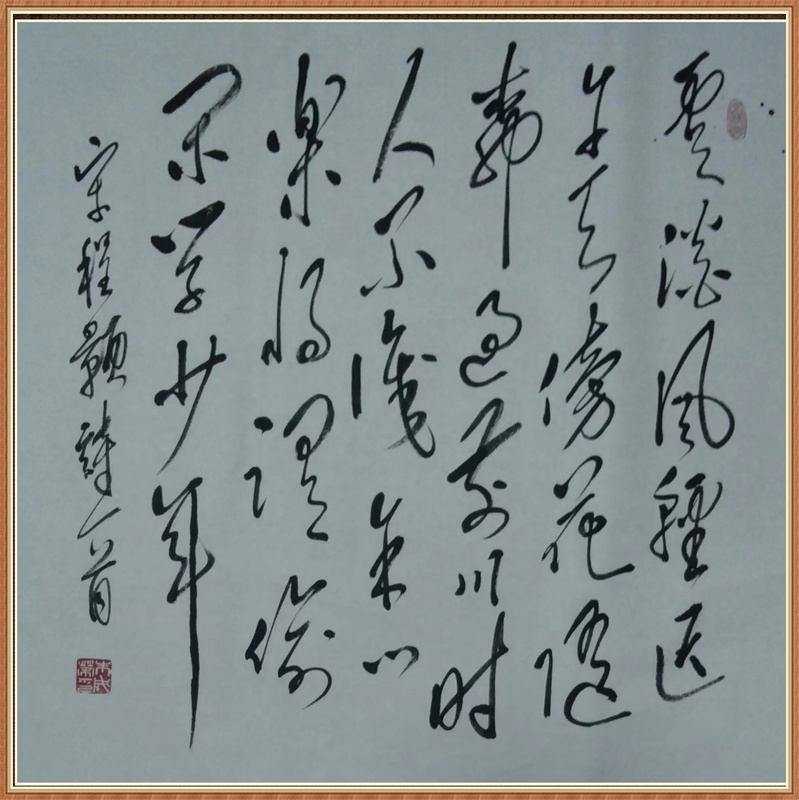 雲淡风輕近
午天傍花隨
柳過前川时
人不識余心
樂将謂偷
闲学少年
宋程顥詩一首